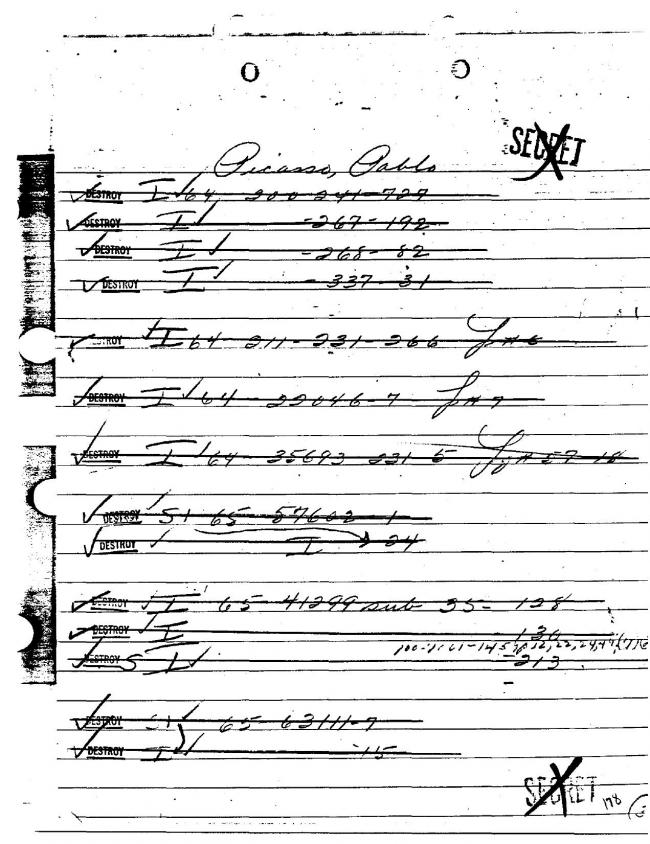 SECRET
Picasso, Pablo
DESTROY I 64 200-241-727
DESTROY I -267-192
DESTROY I -268-82
DESTROY I -337-31
I 64-211-231-266
DESTROY I 64-22046-7
DESTROY I 64-35693-231-5
DESTROY SI 65-57602-1
DESTROY I 24
DESTROY I 65-41299 sub 35-128
DESTROY I 130
DESTROY S I -213
DESTROY SI 65-63111-7
DESTROY I 15
SECRET
178